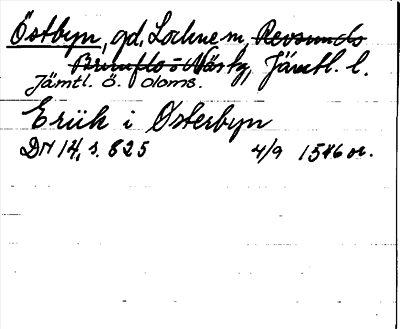 Östbyn, gd, Lockne sn, Revsunds
Brunflo - o Näs tg, Jämtl. l.
Jämtl. ö. doms.
Eriik i Østerbyn
DN 14, s. 825 4/9 1546 or.